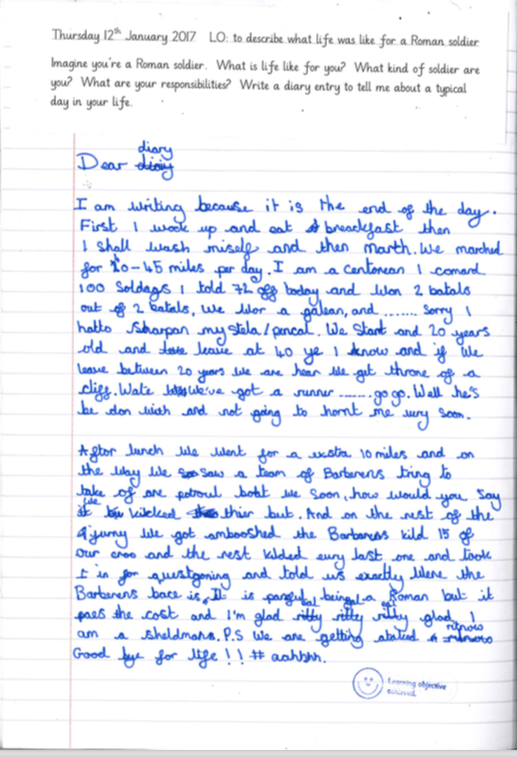 Thursday 12th January 2017 LO: to describe what life was like for a Roman soldier
Imagine you're a Roman soldier. What is life like for you? What kind of soldier are
you? What are your responsibilities? Write a diary entry to tell me about a typical
day in your life.
diary
Dear
I am writing because it is the end of the day.
First I wook up and eat breackfast then
I shall wash miself and then marth. We marched
for 20-45 miles per day. I am a Centorean I comard
100 Soldags I told 72 off boday and Won 2 batals
out of 2 batals, We Wor a galean, and ....... Sorry I
hatto Sharpan my stela/pencal. We Start and 20 years
old and leave at 40 ye I know and if We
leave between 20 years We are hear We get throne of a
cliff. Wate We've got a runner ....... go go. Well he's
be don with and not going to hornt me very Soon.
After lunch We Went for a exstra 10 miles and on
the way We Saw a team of Barberens tring to
take of are potroul boht We Soon, how would you Say
it We kicked thir but. And on the rest of the
jurny We got ambooshed the Barborens kild 15 of
our and the rest kilded eury last one and took
I in for questgoning and told us exactly Were the
Barberens bace is. It is being a Roman but it
paes the cost and I'm glad ritty ritty ritty glad I
am a sheldmans. P.S We are getting atated
ritnow
Good bye for life!! # aahhhh.
Learning objective
achieved.